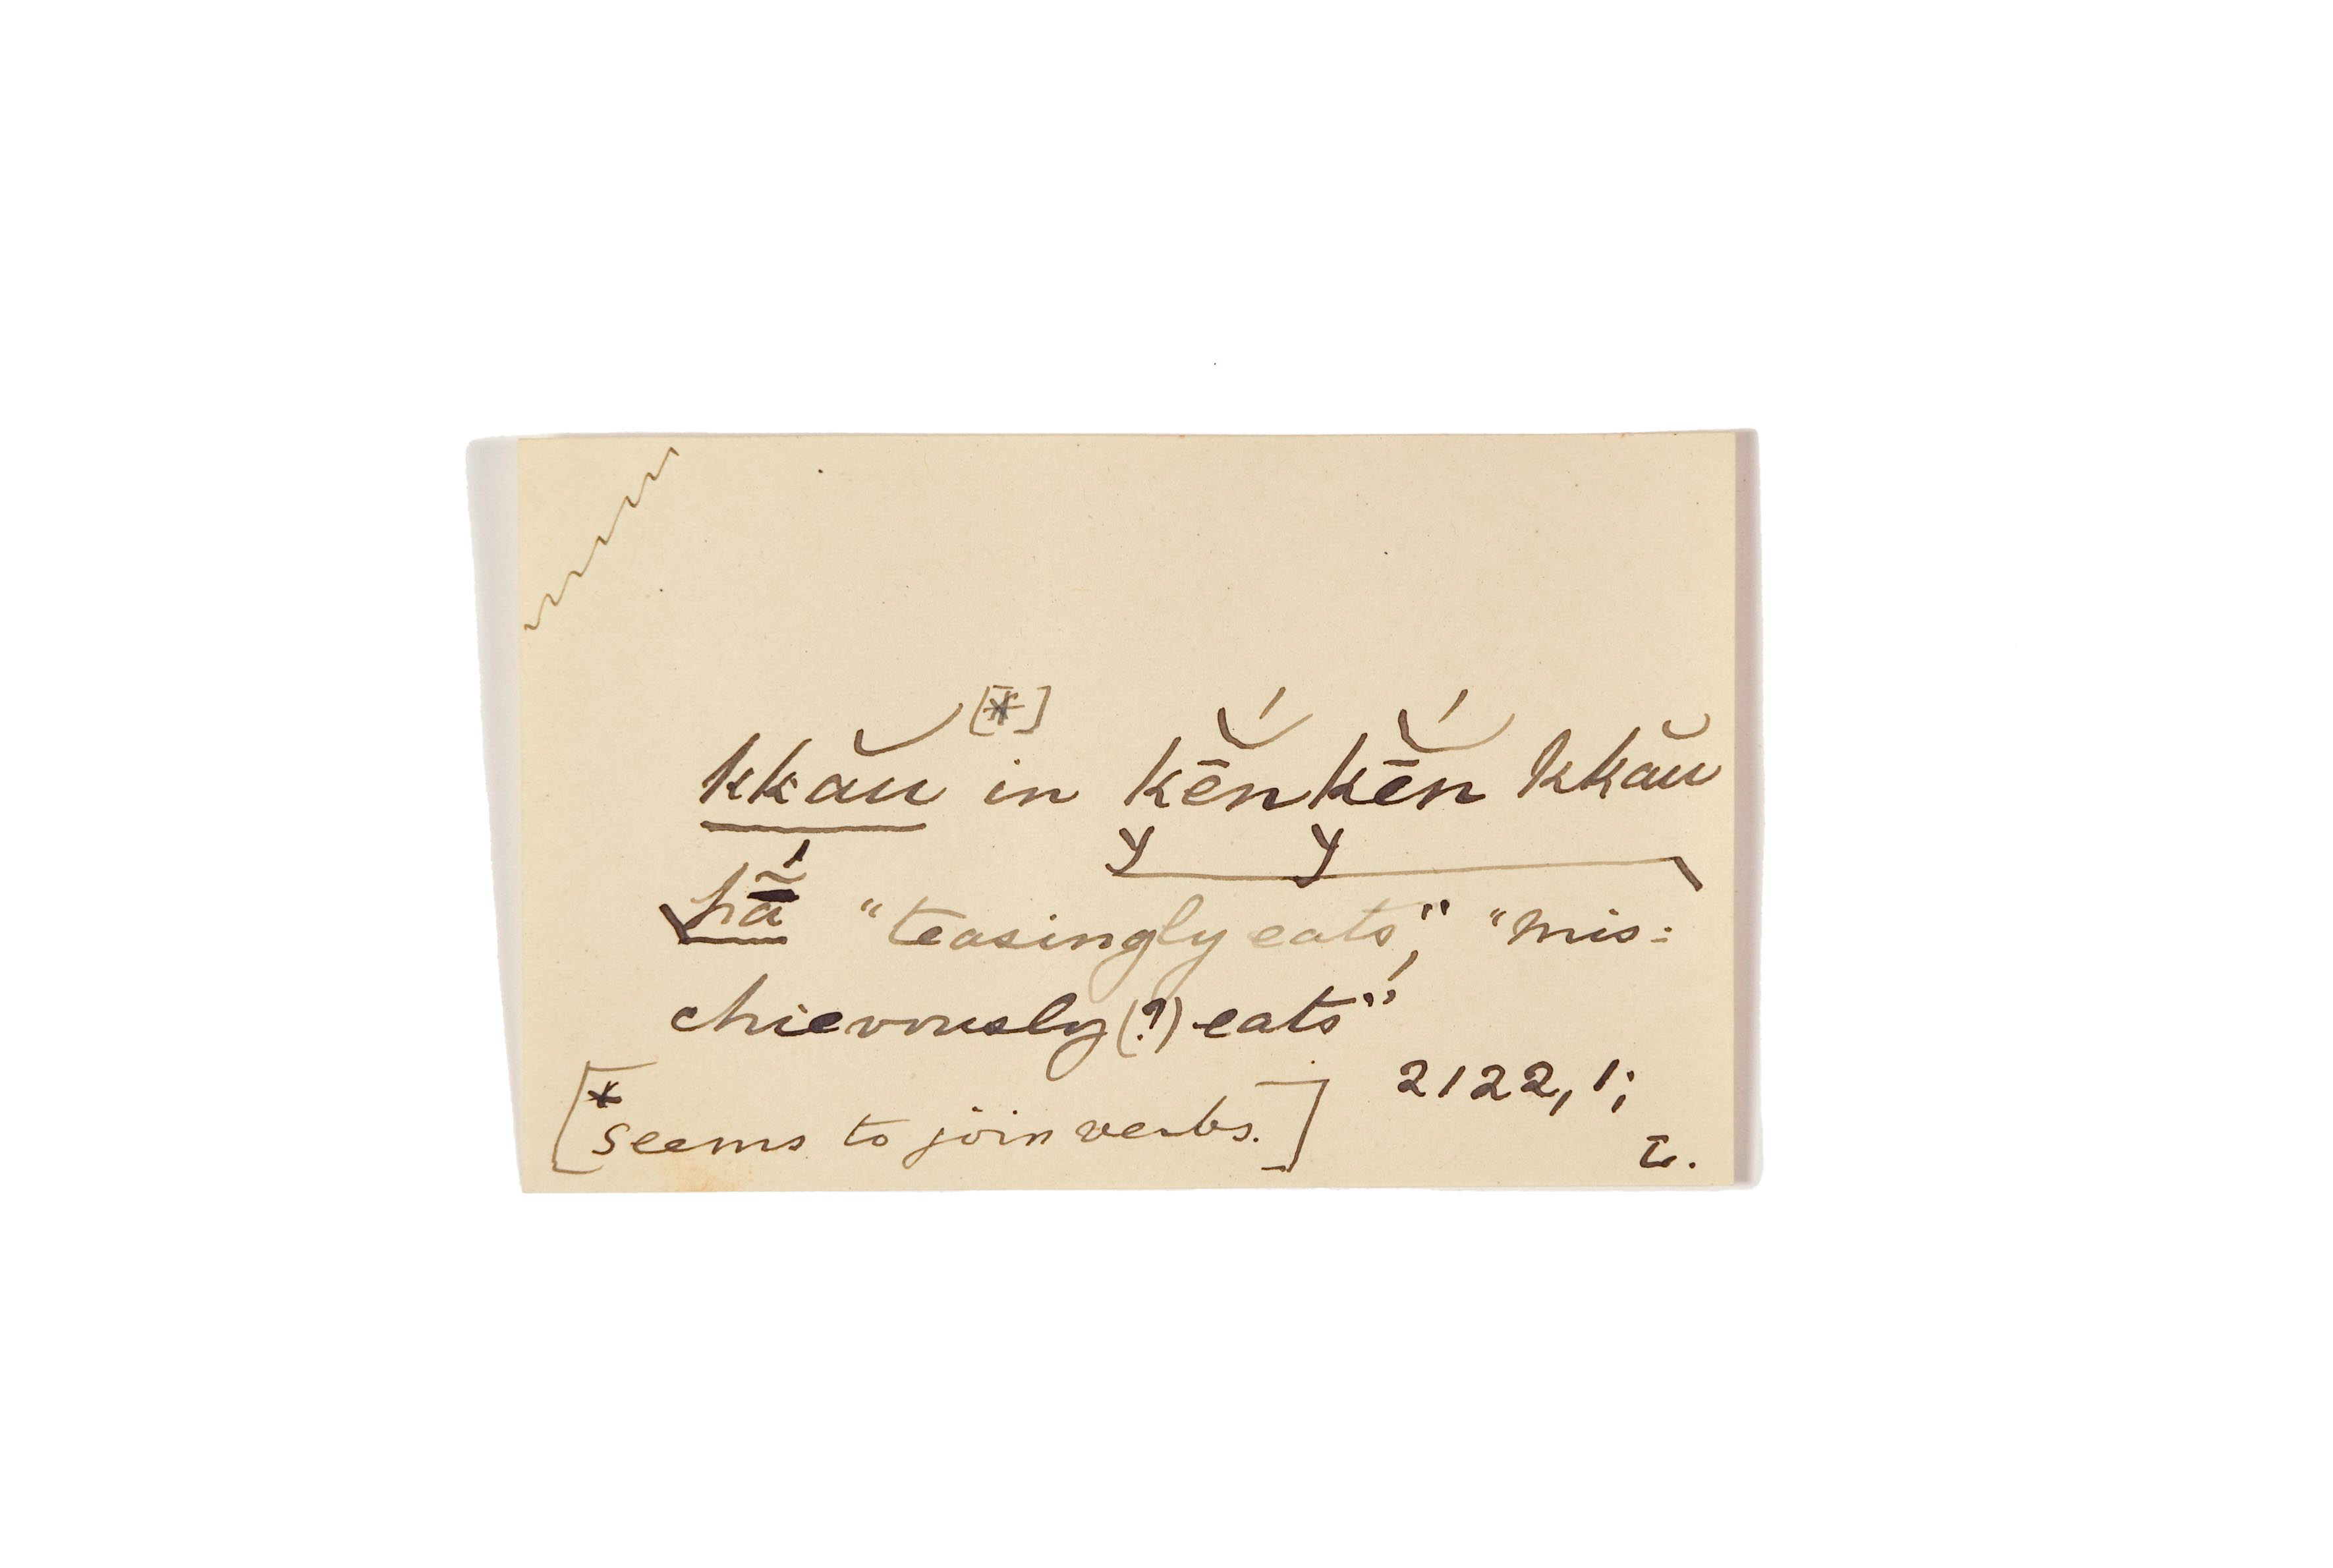 kkău [*] in kē̆́nkē̆́n kkău
hā̃́ "teasingly eats," "mis=
chievously (?) eats"
2122, 1;
[* seems to join verbs.]